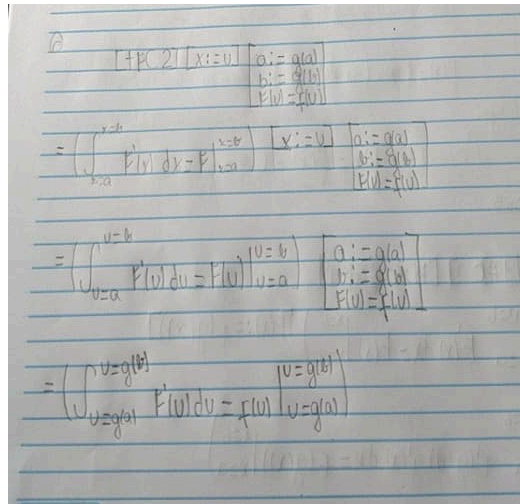 [TFC 2] [x:=u] [a:=g(a)
b:=g(b)
F(u)=f(u)]
= (∫_{x=a}^{x=b} F'(x) dx = F|_{x=a}^{x=b}) [x:=u] [a:=g(a)
b:=g(b)
F(u)=f(u)]
= (∫_{u=a}^{u=b} F'(u) du = F(u)|_{u=a}^{u=b}) [a:=g(a)
b:=g(b)
F(u)=f(u)]
= (∫_{u=g(a)}^{u=g(b)} F'(u) du = f(u)|_{u=g(a)}^{u=g(b)})